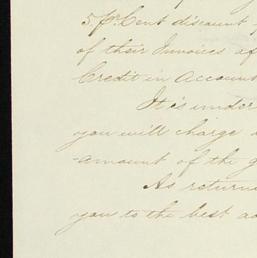 5 pr Cent discount
of their Invoices af
Credit in Account
It is under
you will charge
amount of the g
As return
you to the best ad